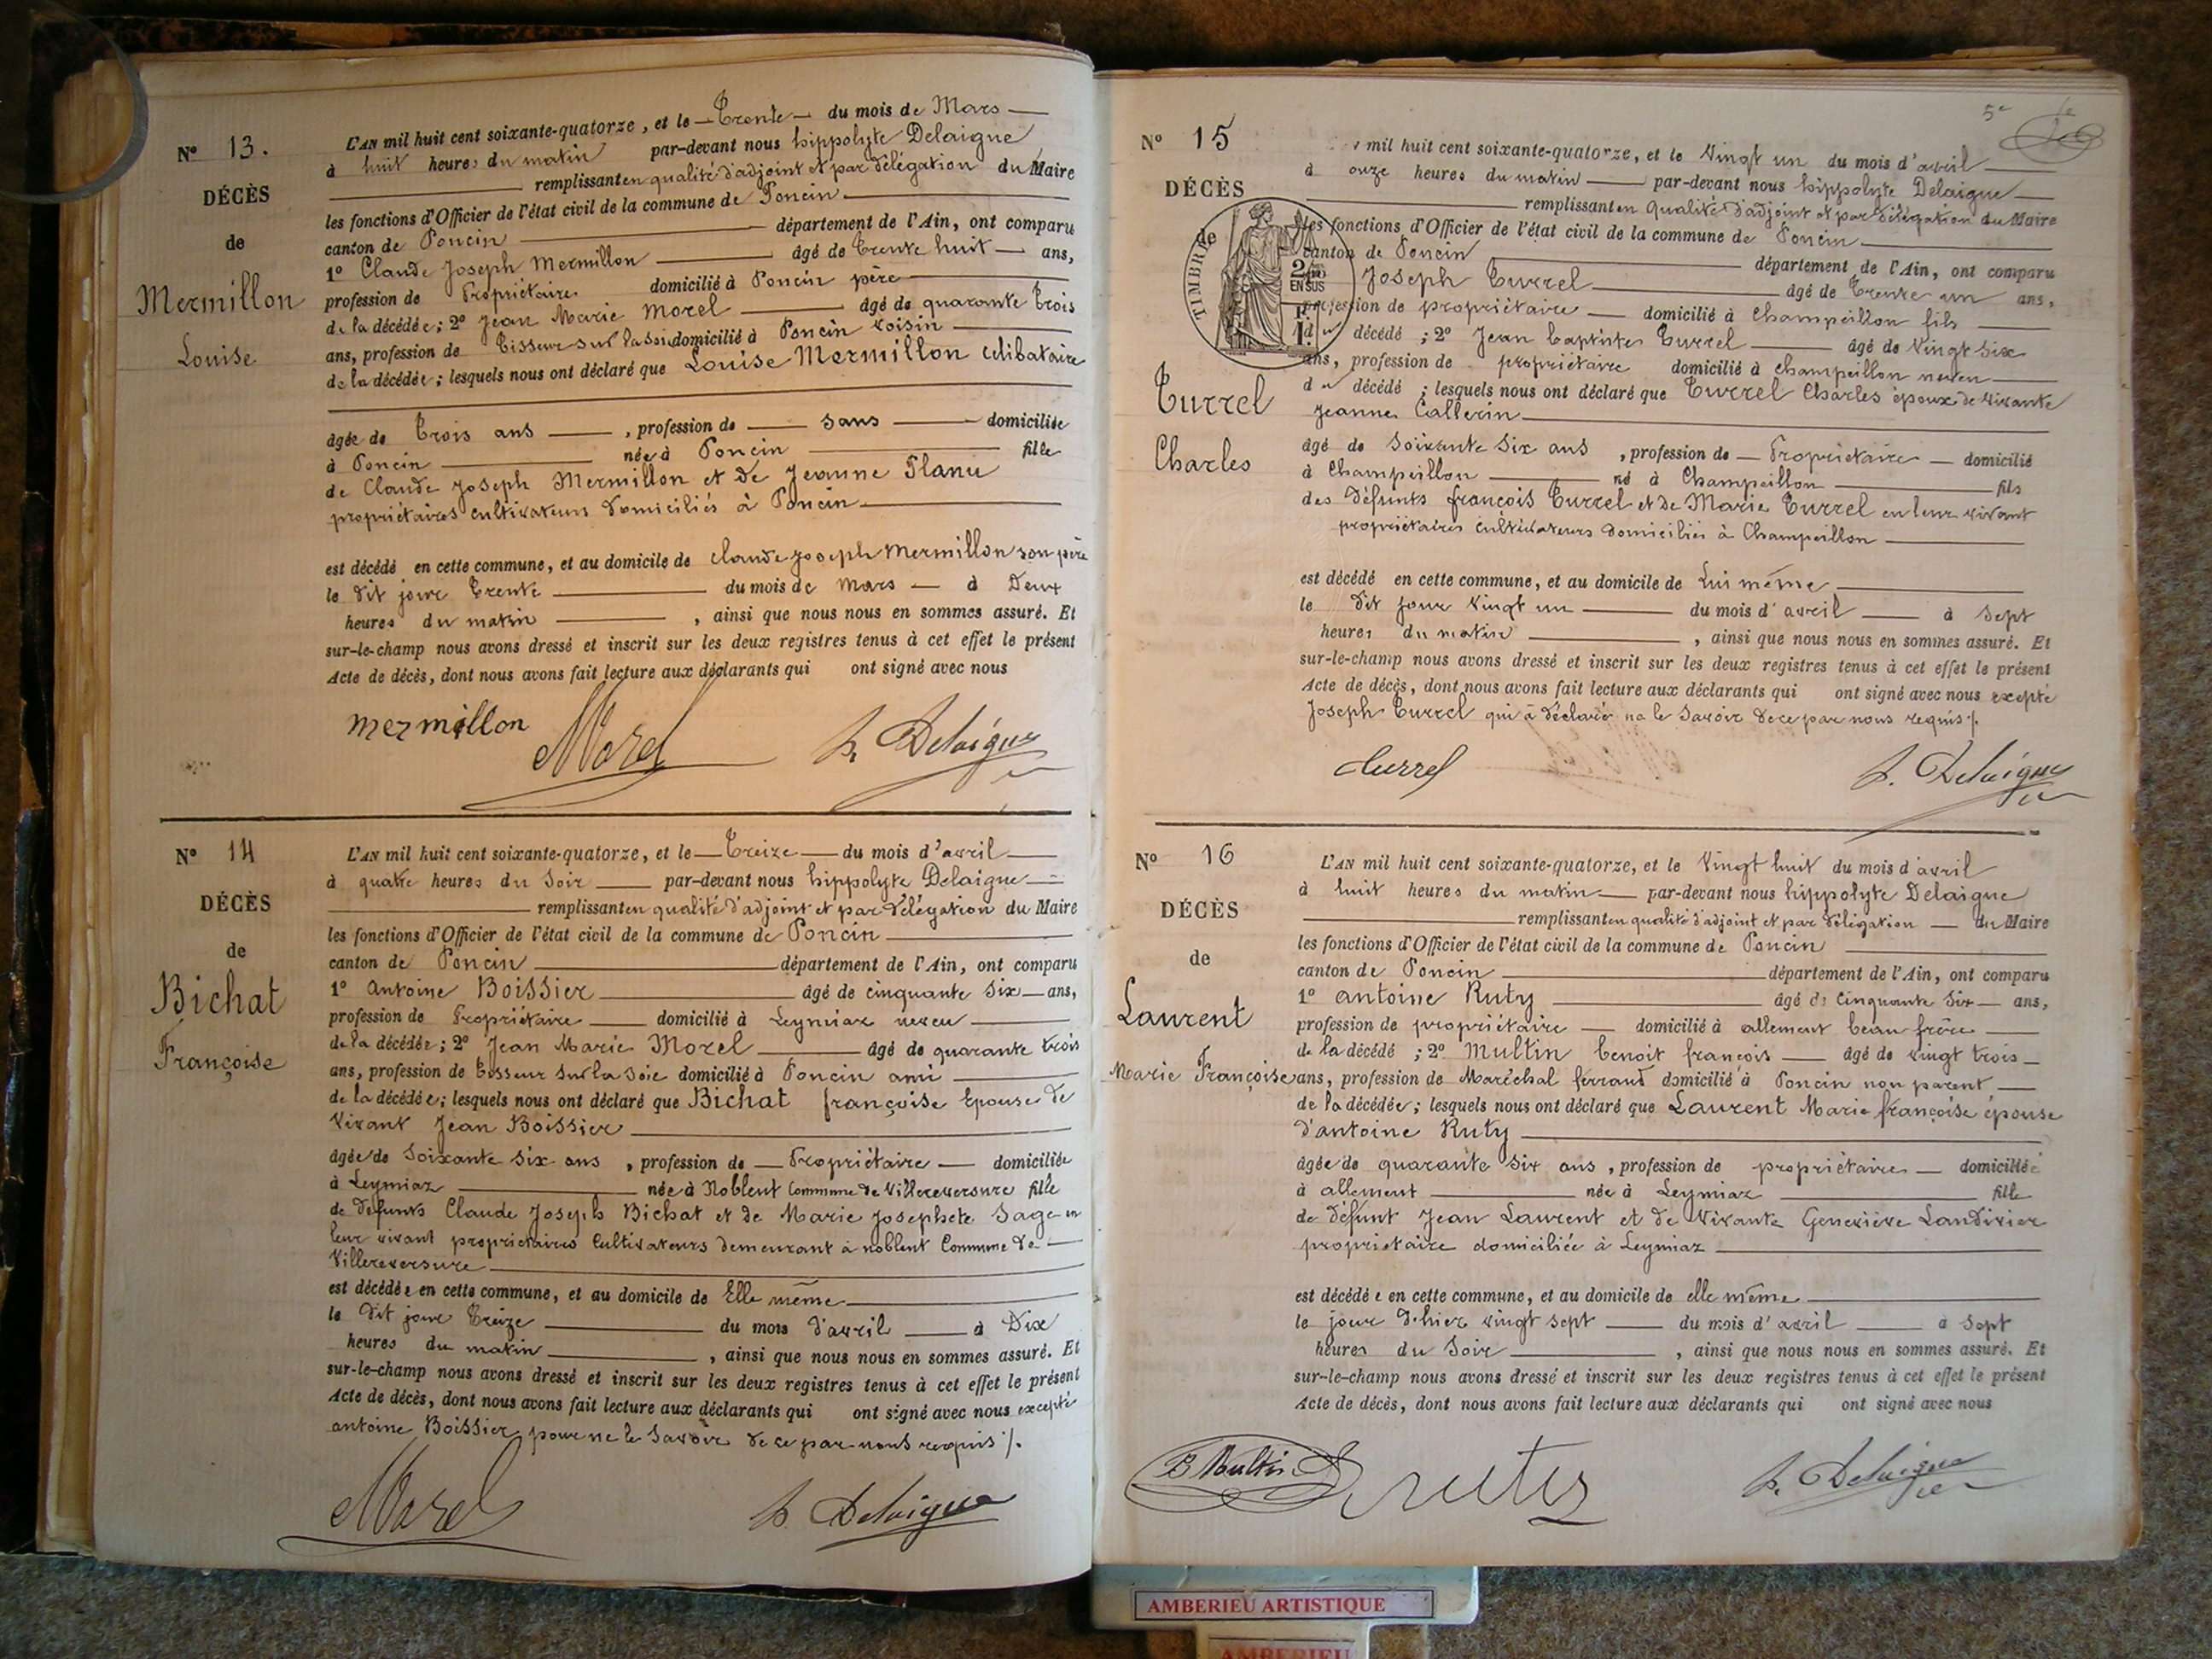 N° 13.
DÉCÈS
de
Mermillon
Louise
L'AN mil huit cent soixante-quatorze, et le Trente du mois de Mars
à huit heures du matin par-devant nous hippolyte Delaigne
remplissant en qualité d'adjoint et par délégation du Maire
les fonctions d'Officier de l'état civil de la commune de Poncin
canton de Poncin département de l'Ain, ont comparu
1° Claude Joseph Mermillon âgé de Trente huit ans,
profession de Propriétaire domicilié à Poncin père
de la décédée; 2° Jean Marie Morel âgé de quarante trois
ans, profession de Tisseur sur la soie domicilié à Poncin voisin
de la décédée; lesquels nous ont déclaré que Louise Mermillon célibataire
âgée de Trois ans, profession de sans domiciliée
à Poncin née à Poncin fille
de Claude Joseph Mermillon et de Jeanne
propriétaires cultivateurs domiciliés à Poncin
est décédé en cette commune, et au domicile de Claude Joseph Mermillon son père
le dit jour Trente du mois de Mars à Deux
heures du matin, ainsi que nous nous en sommes assuré. Et
sur-le-champ nous avons dressé et inscrit sur les deux registres tenus à cet effet le présent
Acte de décès, dont nous avons fait lecture aux déclarants qui ont signé avec nous
mermillon Morel h. Delaigue
N° 14
DÉCÈS
de
Bichat
Françoise
L'AN mil huit cent soixante-quatorze, et le Treize du mois d'avril
à quatre heures du Soir par-devant nous hippolyte Delaigne
remplissant en qualité d'adjoint et par délégation du Maire
les fonctions d'Officier de l'état civil de la commune de Poncin
canton de Poncin département de l'Ain, ont comparu
1° Antoine Boissier âgé de cinquante Six ans,
profession de Propriétaire domicilié à Leymiaz neveu
de la décédée; 2° Jean Marie Morel âgé de quarante trois
ans, profession de Tisseur Sur la Soie domicilié à Poncin ami
de la décédée; lesquels nous ont déclaré que Bichat françoise Epouse de
Vivant Jean Boissier
âgée de Soixante Six ans, profession de Propriétaire domiciliée
à Leymiaz née à Noblent Commune de Villereversure fille
de défunts Claude Joseph Bichat et de Marie Josephete Sage en
leur vivant propriétaires Cultivateurs demeurant à noblent Commune de
Villereversure
est décédée en cette commune, et au domicile de Elle même
le dit jour Treize du mois d'avril à Dix
heures du matin, ainsi que nous nous en sommes assuré. Et
sur-le-champ nous avons dressé et inscrit sur les deux registres tenus à cet effet le présent
Acte de décès, dont nous avons fait lecture aux déclarants qui ont signé avec nous excepté
antoine Boissier pour ne le Savoir de ce par nous requis /.
Morel h. Delaigue
5e
N° 15
DÉCÈS
de
TIMBRE
2/10 EN SUS
Turrel
Charles
mil huit cent soixante-quatorze, et le Vingt un du mois d'avril
à onze heures du matin par-devant nous hippolyte Delaigue
remplissant en qualité d'adjoint et par délégation du Maire
les fonctions d'Officier de l'état civil de la commune de Poncin
canton de Poncin département de l'Ain, ont comparu
Joseph Turrel âgé de Trente un ans,
profession de propriétaire domicilié à Champeillon fils
du décédé; 2° Jean baptiste Turrel âgé de Vingt Six
ans, profession de propriétaire domicilié à Champeillon neveu
du décédé; lesquels nous ont déclaré que Turrel Charles époux de vivante
Jeanne Callerin
âgé de Soixante Six ans, profession de Propriétaire domicilié
à Champeillon né à Champeillon fils
des défunts françois Turrel et de Marie Turrel en leur vivant
propriétaires cultivateurs domiciliés à Champeillon
est décédé en cette commune, et au domicile de Lui même
le dit jour Vingt un du mois d'avril à Sept
heures du matin, ainsi que nous nous en sommes assuré. Et
sur-le-champ nous avons dressé et inscrit sur les deux registres tenus à cet effet le présent
Acte de décès, dont nous avons fait lecture aux déclarants qui ont signé avec nous excepté
Joseph Turrel qui à déclaré ne le Savoir de ce par nous requis /.
turrel h. Delaigue
N° 16
DÉCÈS
de
Laurent
Marie Françoise
L'AN mil huit cent soixante-quatorze, et le Vingt huit du mois d'avril
à huit heures du matin par-devant nous hippolyte Delaigue
remplissant en qualité d'adjoint et par délégation du Maire
les fonctions d'Officier de l'état civil de la commune de Poncin
canton de Poncin département de l'Ain, ont comparu
1° antoine Ruty âgé de Cinquante Six ans,
profession de propriétaire domicilié à allement beau frère
de la décédé; 2° Multin benoit françois âgé de vingt trois
ans, profession de Maréchal ferrand domicilié à Poncin non parent
de la décédée; lesquels nous ont déclaré que Laurent Marie françoise épouse
d'antoine Ruty
âgée de quarante Six ans, profession de propriétaire domiciliée
à allement née à Leymiaz fille
de défunt Jean Laurent et de Vivante Geneviève Landivier
propriétaire domiciliée à Leymiaz
est décédée en cette commune, et au domicile de elle même
le jour d'hier vingt sept du mois d'avril à Sept
heures du Soir, ainsi que nous nous en sommes assuré. Et
sur-le-champ nous avons dressé et inscrit sur les deux registres tenus à cet effet le présent
Acte de décès, dont nous avons fait lecture aux déclarants qui ont signé avec nous
B Multin ruty h. Delaigue
AMBERIEU ARTISTIQUE
AMBERIEU